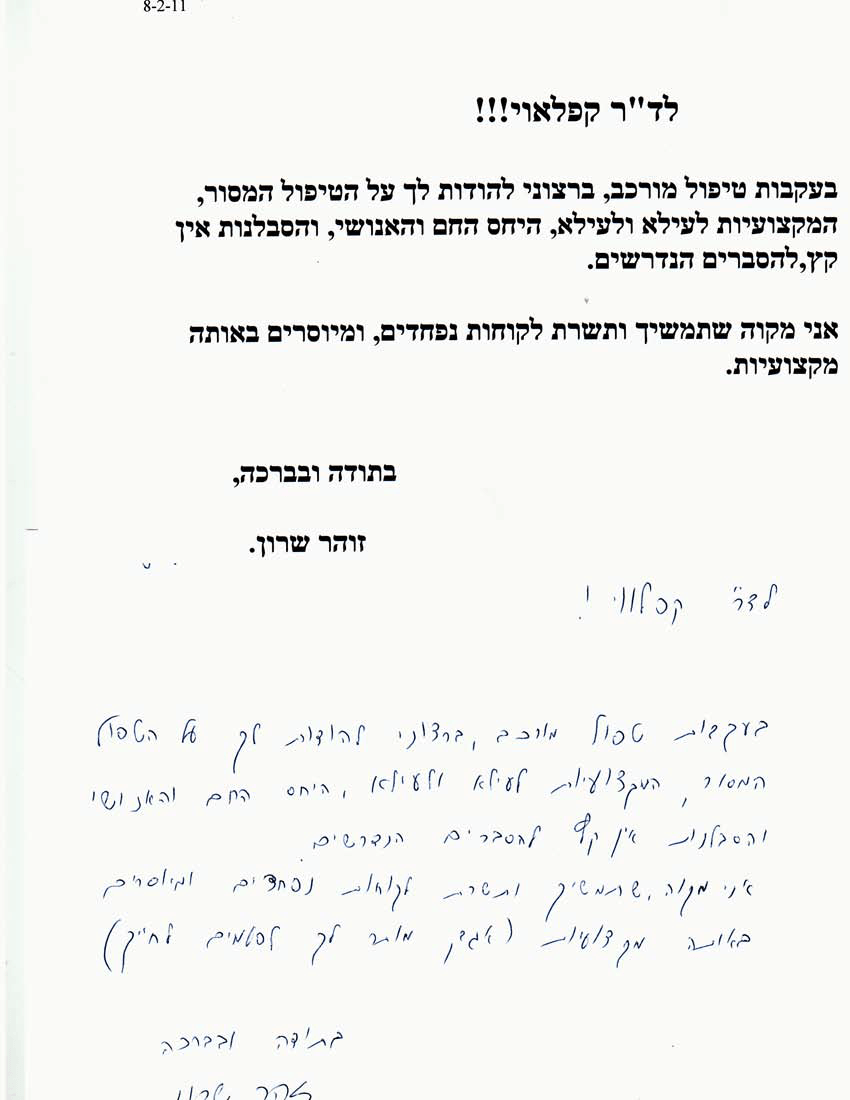 8-2-11
לד"ר קפלאוי!!!
בעקבות טיפול מורכב, ברצוני להודות לך על הטיפול המסור,
המקצועיות לעילא ולעילא, היחס החם והאנושי, והסבלנות אין
קץ,להסברים הנדרשים.
אני מקוה שתמשיך ותשרת לקוחות נפחדים, ומיוסרים באותה
מקצועיות.
בתודה ובברכה,
זוהר שרון.
לדר" קפלווי !
בעקבות טפול מורכב, ברצוני להודות לך על הטפול
המסור, המקצועיות לעילא ולעילא, היחס החם והאנושי
והסבלנות אין קץ להסברים הנדרשים.
אני מקוה, שתמשיך ותשרת לקוחות נפחדים ומיוסרים
באותה מקצועיות ( מותר לך לחייך)
בתודה ובברכה
זהר שרון